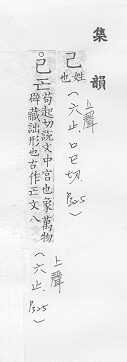 集韻
己姓也(上聲六止,口己切,P325)
己𢀒苟起切說文中宮也象萬物
辟藏詘形也古作𢀒文八
(上聲六止,P325)